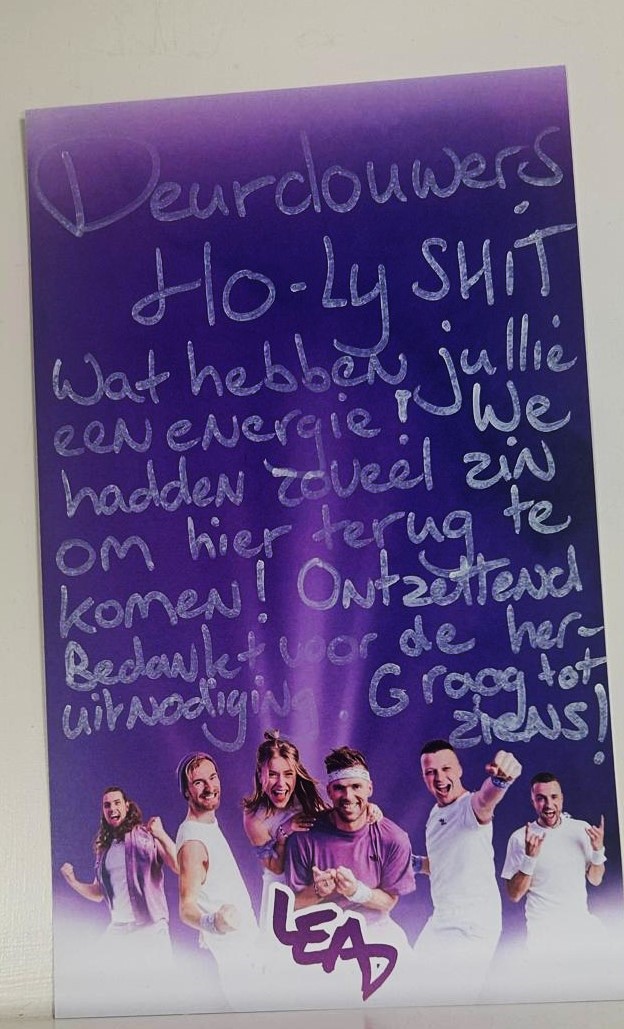 Deurdouwers
Ho-Ly SHiT
Wat hebben jullie
een energie! We
hadden zoveel zin
om hier terug te
komen! Ontzettend
Bedankt voor de her-
uitnodiging. Graag tot
ziens!
LEAD